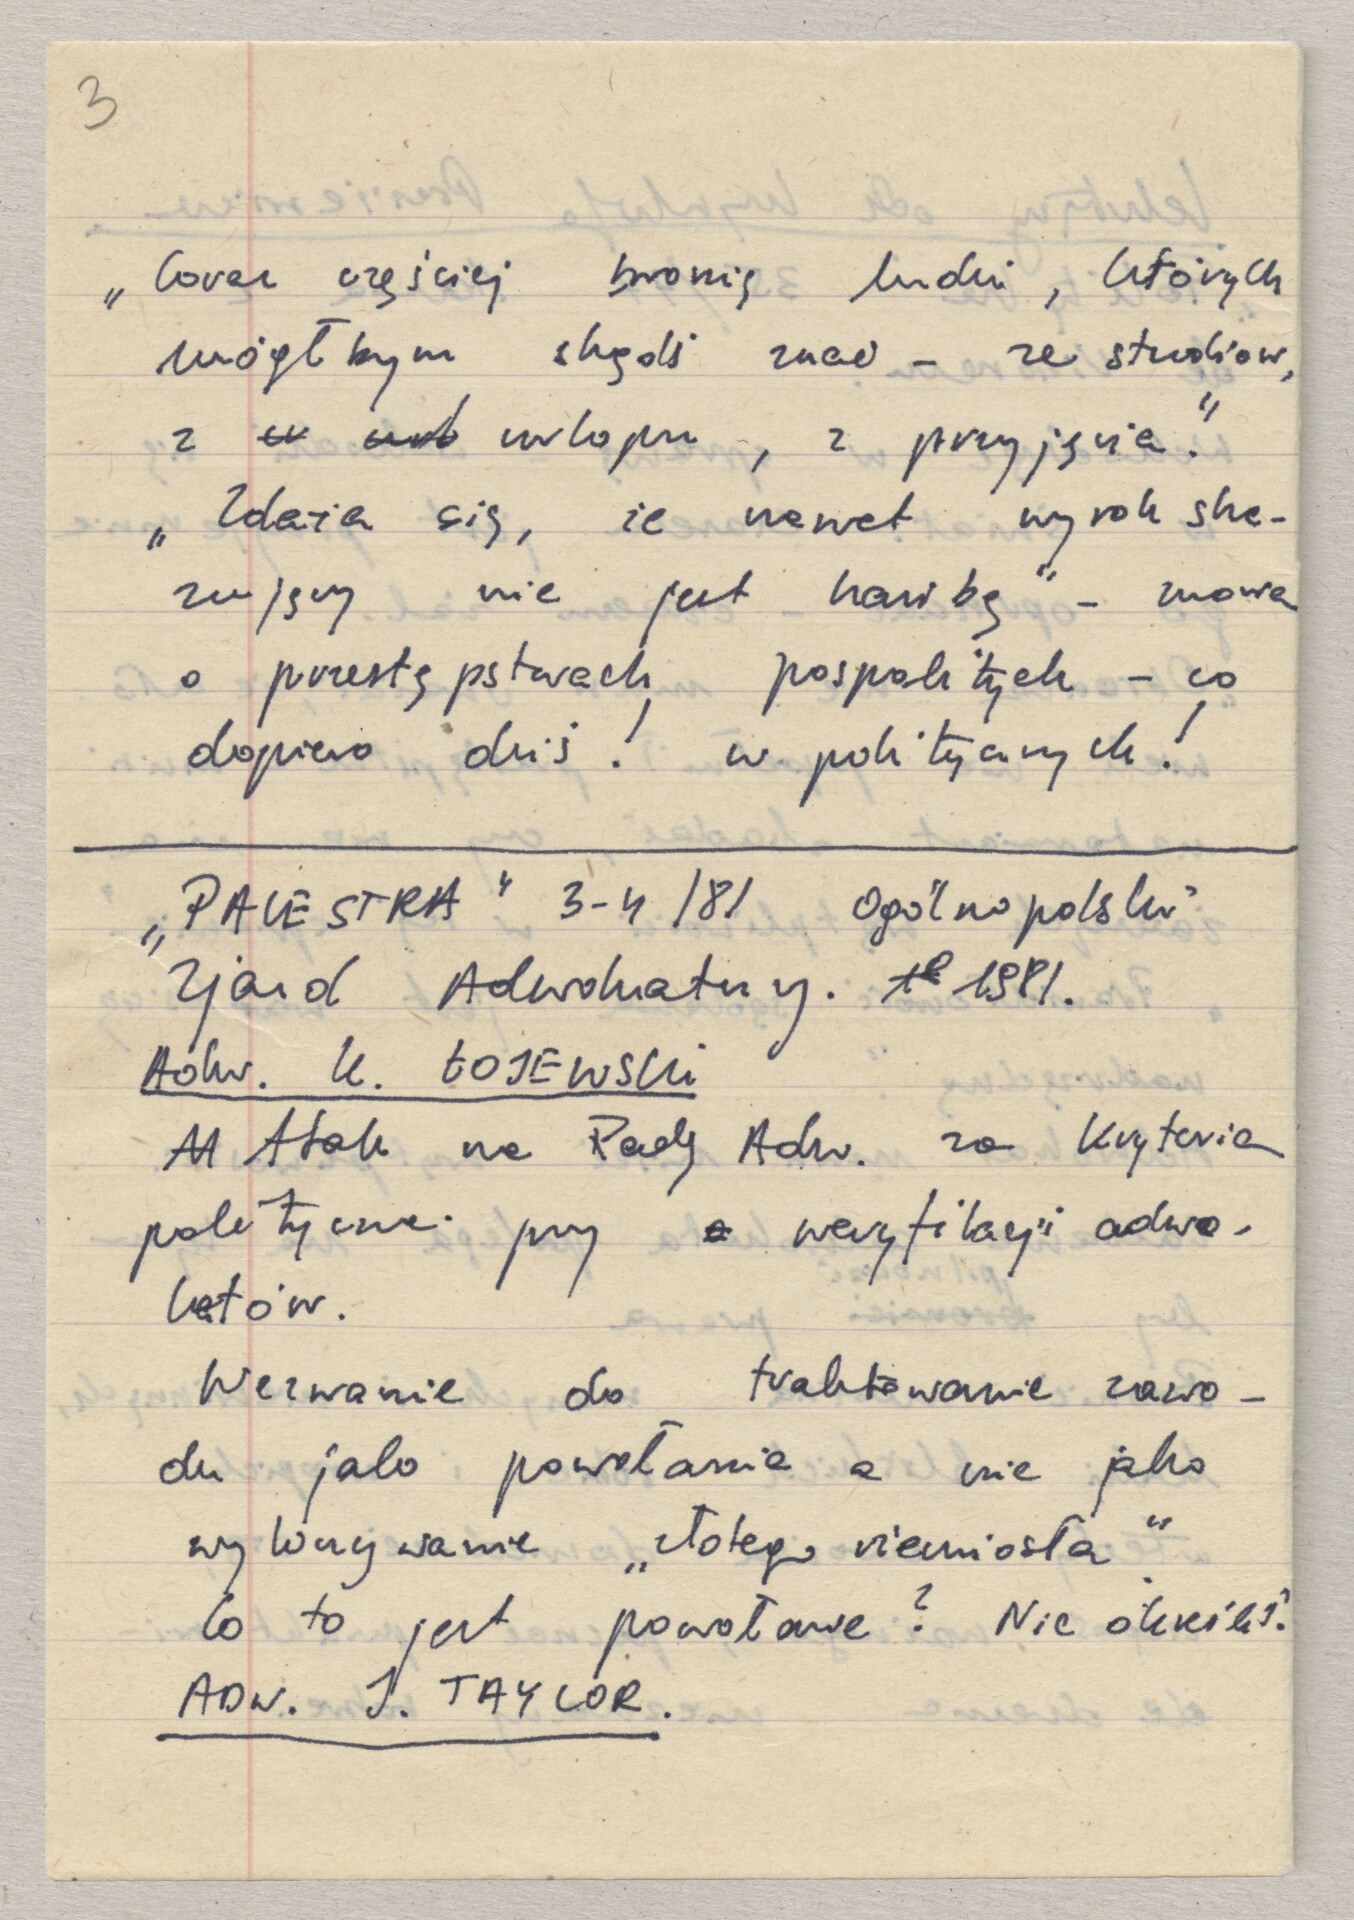 3
„Coraz częściej bronię ludzi, których
mógłbym skądś znać – ze studiów,
z urlopu, z przyjęcia."
„Zdarza się, że nawet wyrok ska-
zujący nie jest hańbą" – mowa
o przestępstwach pospolitych – co
dopiero dziś! w politycznych!
„PALESTRA" 3-4/81 Ogólnopolski
Zjazd Adwokatury. 1981.
Adw. K. ŁOJEWSKI
Atak na Radę Adw. za kryteria
polityczne przy weryfikacji adwo-
katów.
Wezwanie do traktowanie zawo-
du jako powołanie a nie jako
wykonywanie „złotego rzemiosła"
Co to jest powołanie? Nie określił.
ADW. J. TAYLOR.